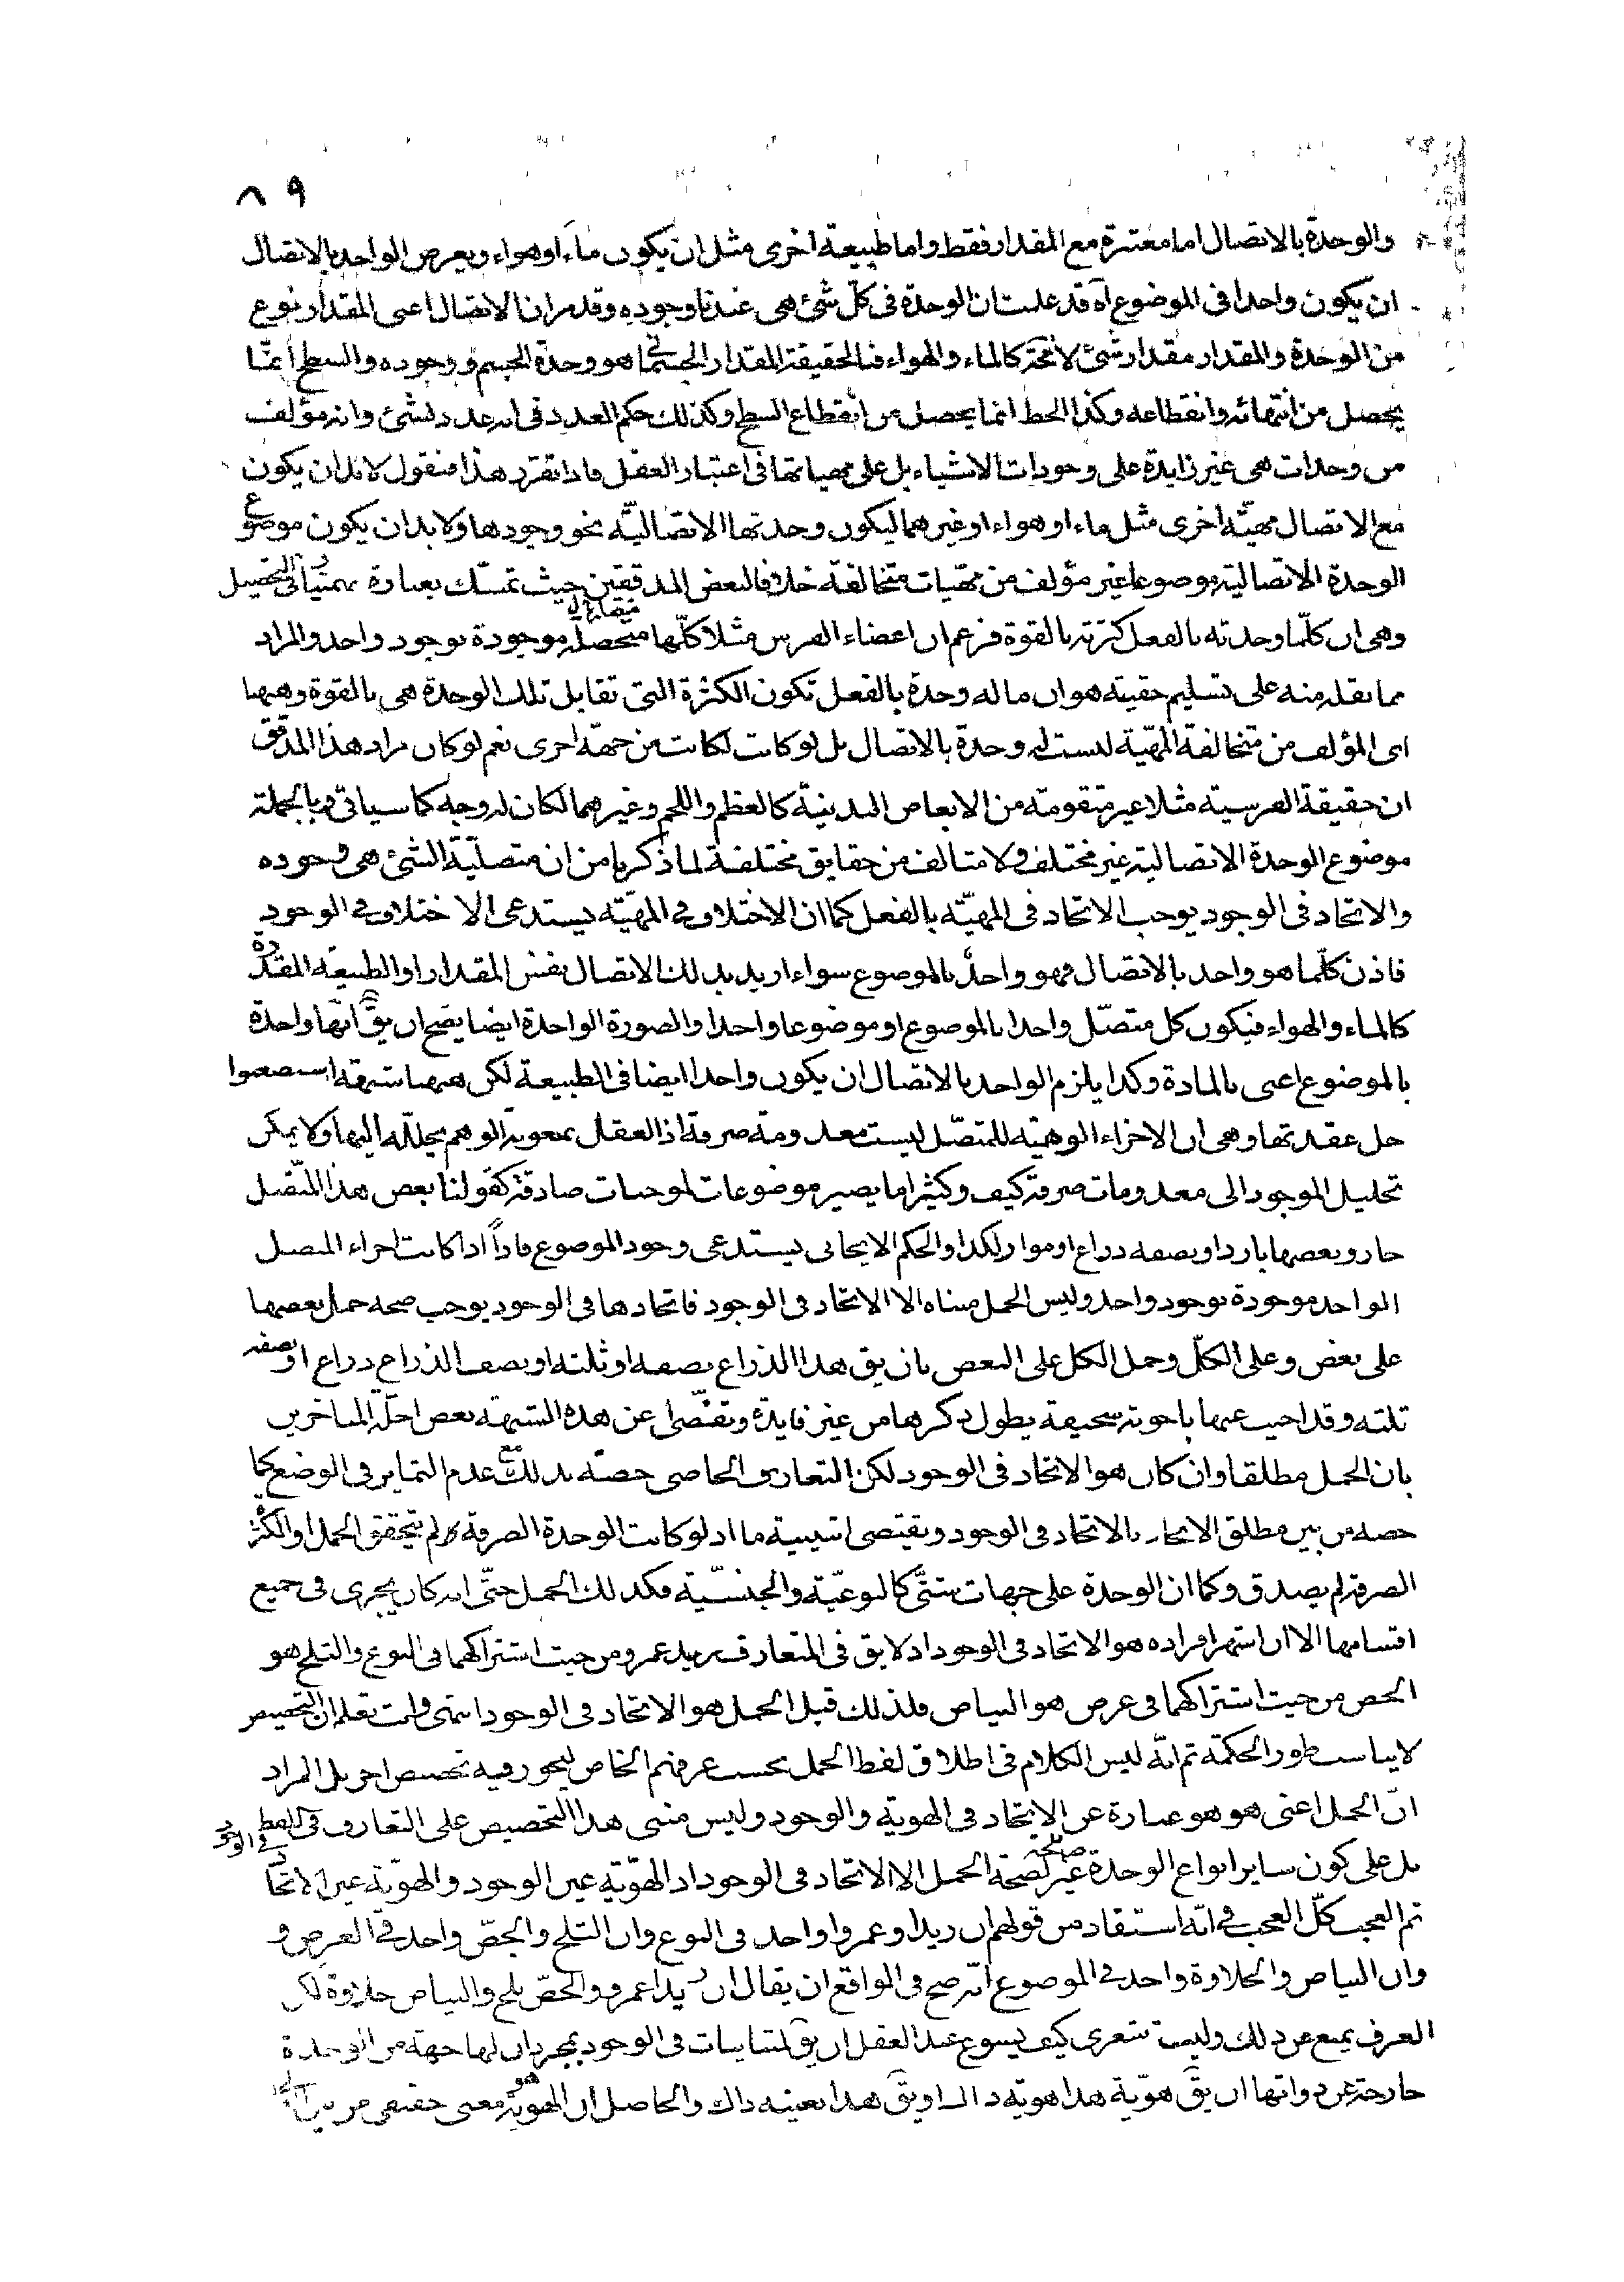 ٨٩
والوحدة بالاتصال اما معتبرة مع المقدار فقط واما طبيعة اخرى مثل ان يكون ماء او هواء ويعرض الواحد بالاتصال
ان يكون واحدا فى الموضوع آه قد علمت ان الوحدة فى كل شئ هى عندنا وجوده وقد مر ان الاتصال اعنى المقدار نوع
من الوحدة والمقدار مقدار شئ لا محة كالماء والهواء فبالحقيقة المقدار الجسمانى هو وحدة الجسم ووجوده والسطح انما
يحصل من انتهائه وانقطاعه وكذا الخط انما يحصل من انقطاع السطح وكذلك حكم العدد فى انه عدد لشئ وانه مؤلف
من وحدات هى غير زايدة على وجودات الاشياء بل على مهياتها فى اعتبار العقل فاذا تقرر هذا فنقول لا بد ان يكون
مع الاتصال مهيّة اخرى مثل ماء او هواء او غيرهما ليكون وحدتها الاتصاليّة نحو وجودها ولا بد ان يكون موضوع
الوحدة الاتصالية موضوعا غير مؤلف من مهيّات متخالفة خلافا لبعض المدققين حيث تمسّك بعبارة بهمنيار فى التحصيل
وهى ان كلّما وحدته بالفعل كثرته بالقوة فزعم ان اعضاء الفرس مثلا كلّها متحصلة موجودة بوجود واحد والمراد
مما نقله منه على تسليم حقيته هو ان ما له وحدة بالفعل تكون الكثرة التى تقابل تلك الوحدة هى بالقوة وههنا
اى المؤلف من متخالفة المهيّة ليست له وحدة بالاتصال بل لو كانت لكانت من جهة اخرى نعم لو كان مراد هذا المدقق
ان حقيقة الفرسية مثلا غير متقومة من الابعاض البدنيّة كالعظم واللحم وغيرهما لكان له وجه كما سياتى وبالجملة
موضوع الوحدة الاتصالية غير مختلف ولا متالف من حقايق مختلفة لما ذكرنا من ان متصليّة الشئ هى وجوده
والاتحاد فى الوجود يوجب الاتحاد فى المهيّة بالفعل كما ان الاختلاف فى المهيّة يستدعى الاختلاف فى الوجود
فاذن كلّما هو واحد بالاتصال فهو واحد بالموضوع سواء اريد بذلك الاتصال نفس المقدار او الطبيعة المقدرة
كالماء والهواء فيكون كل متصّل واحدا بالموضوع او موضوعا واحدا والصورة الواحدة ايضا يصح ان يقّ انّها واحدة
بالموضوع اعنى بالمادة وكذا يلزم الواحد بالاتصال ان يكون واحدا ايضا فى الطبيعة لكن ههنا شبهة استصعبوا
حل عقدتها وهى ان الاجزاء الوهميّة للمتصّل ليست معدومة صرفة اذ العقل بمعونة الوهم يحلّله اليها ولا يمكن
تحليل الموجود الى معدومات صرفة كيف وكثيرا ما يصير موضوعات لموجبات صادقة كقولنا بعض هذا المتّصل
حار وبعضها بارد او نصفه ذراع او مواز لكذا والحكم الايجابى يستدعى وجود الموضوع فاذاً اذا كانت اجزاء المتصل
الواحد موجودة بوجود واحد وليس الحمل مبناه الا الاتحاد فى الوجود فاتحادها فى الوجود يوجب صحة حمل بعضها
على بعض وعلى الكلّ وحمل الكل على البعض بان يق هذا الذراع نصفه او ثلثه او نصف الذراع ذراع او نصفه
ثلثه وقد اجيب عنها باجوبة سخيفة يطول ذكرها من غير فايدة وتفصّى عن هذه الشبهة بعض اجلّة المتاخرين
بان الحمل مطلقا وان كان هو الاتحاد فى الوجود لكن التعارف الخاصى خصّه بذلك مع عدم التمايز فى الوضع كما
خصه من بين مطلق الاتحاد بالاتحاد فى الوجود ويقتضى اثنينية ما اذ لو كانت الوحدة الصرفة لم يتحقق الحمل او الكثرة
الصرفة لم يصدق وكما ان الوحدة على جهات شتىّ كالنوعيّة والجنسيّة فكذلك الحمل حتّى انه كان يجرى فى جميع
اقسامها الا ان اشهر افراده هو الاتحاد فى الوجود اذ لا يق فى المتعارف زيد عمرو من حيث اشتراكهما فى النوع والثلج هو
الجص من حيث اشتراكهما فى عرض هو البياض ولذلك قيل الحمل هو الاتحاد فى الوجود انتهى وانت تعلم ان التخصيص
لا يناسب طور الحكمة ثم انّه ليس الكلام فى اطلاق لفظ الحمل بحسب عرفهم الخاص ليجوز فيه تخصيص اخر بل المراد
انّ الحمل اعنى هو هو عبارة عن الاتحاد فى الهوية والوجود وليس مبنى هذا التخصيص على التعارف فى اللفظ
بل على كون ساير انواع الوحدة غير مصححة لصحة الحمل الا الاتحاد فى الوجود اذ الهّويّة عين الوجود والهوّية عين الاتحاد
ثم العجب كلّ العجب فى انّه استفاد من قولهم ان زيدا وعمروا واحد فى النوع وان الثلج والجصّ واحد فى العرض و
وان البياض والحلاوة واحد فى الموضوع انّه صح فى الواقع ان يقال ان زيدا عمرو والجصّ ثلج والبياض حلاوة لكن
العرف يمنع عن ذلك وليت شعرى كيف يسوغ عند العقل ان يق لمتباينات فى الوجود بمجرد ان لها جهة من الوحدة
خارجة عن ذواتها ان يقّ هوّية هذا هويّة ذاك او يقّ هذا بعينه ذاك والحاصل ان الهوهوية معنى حقيقى